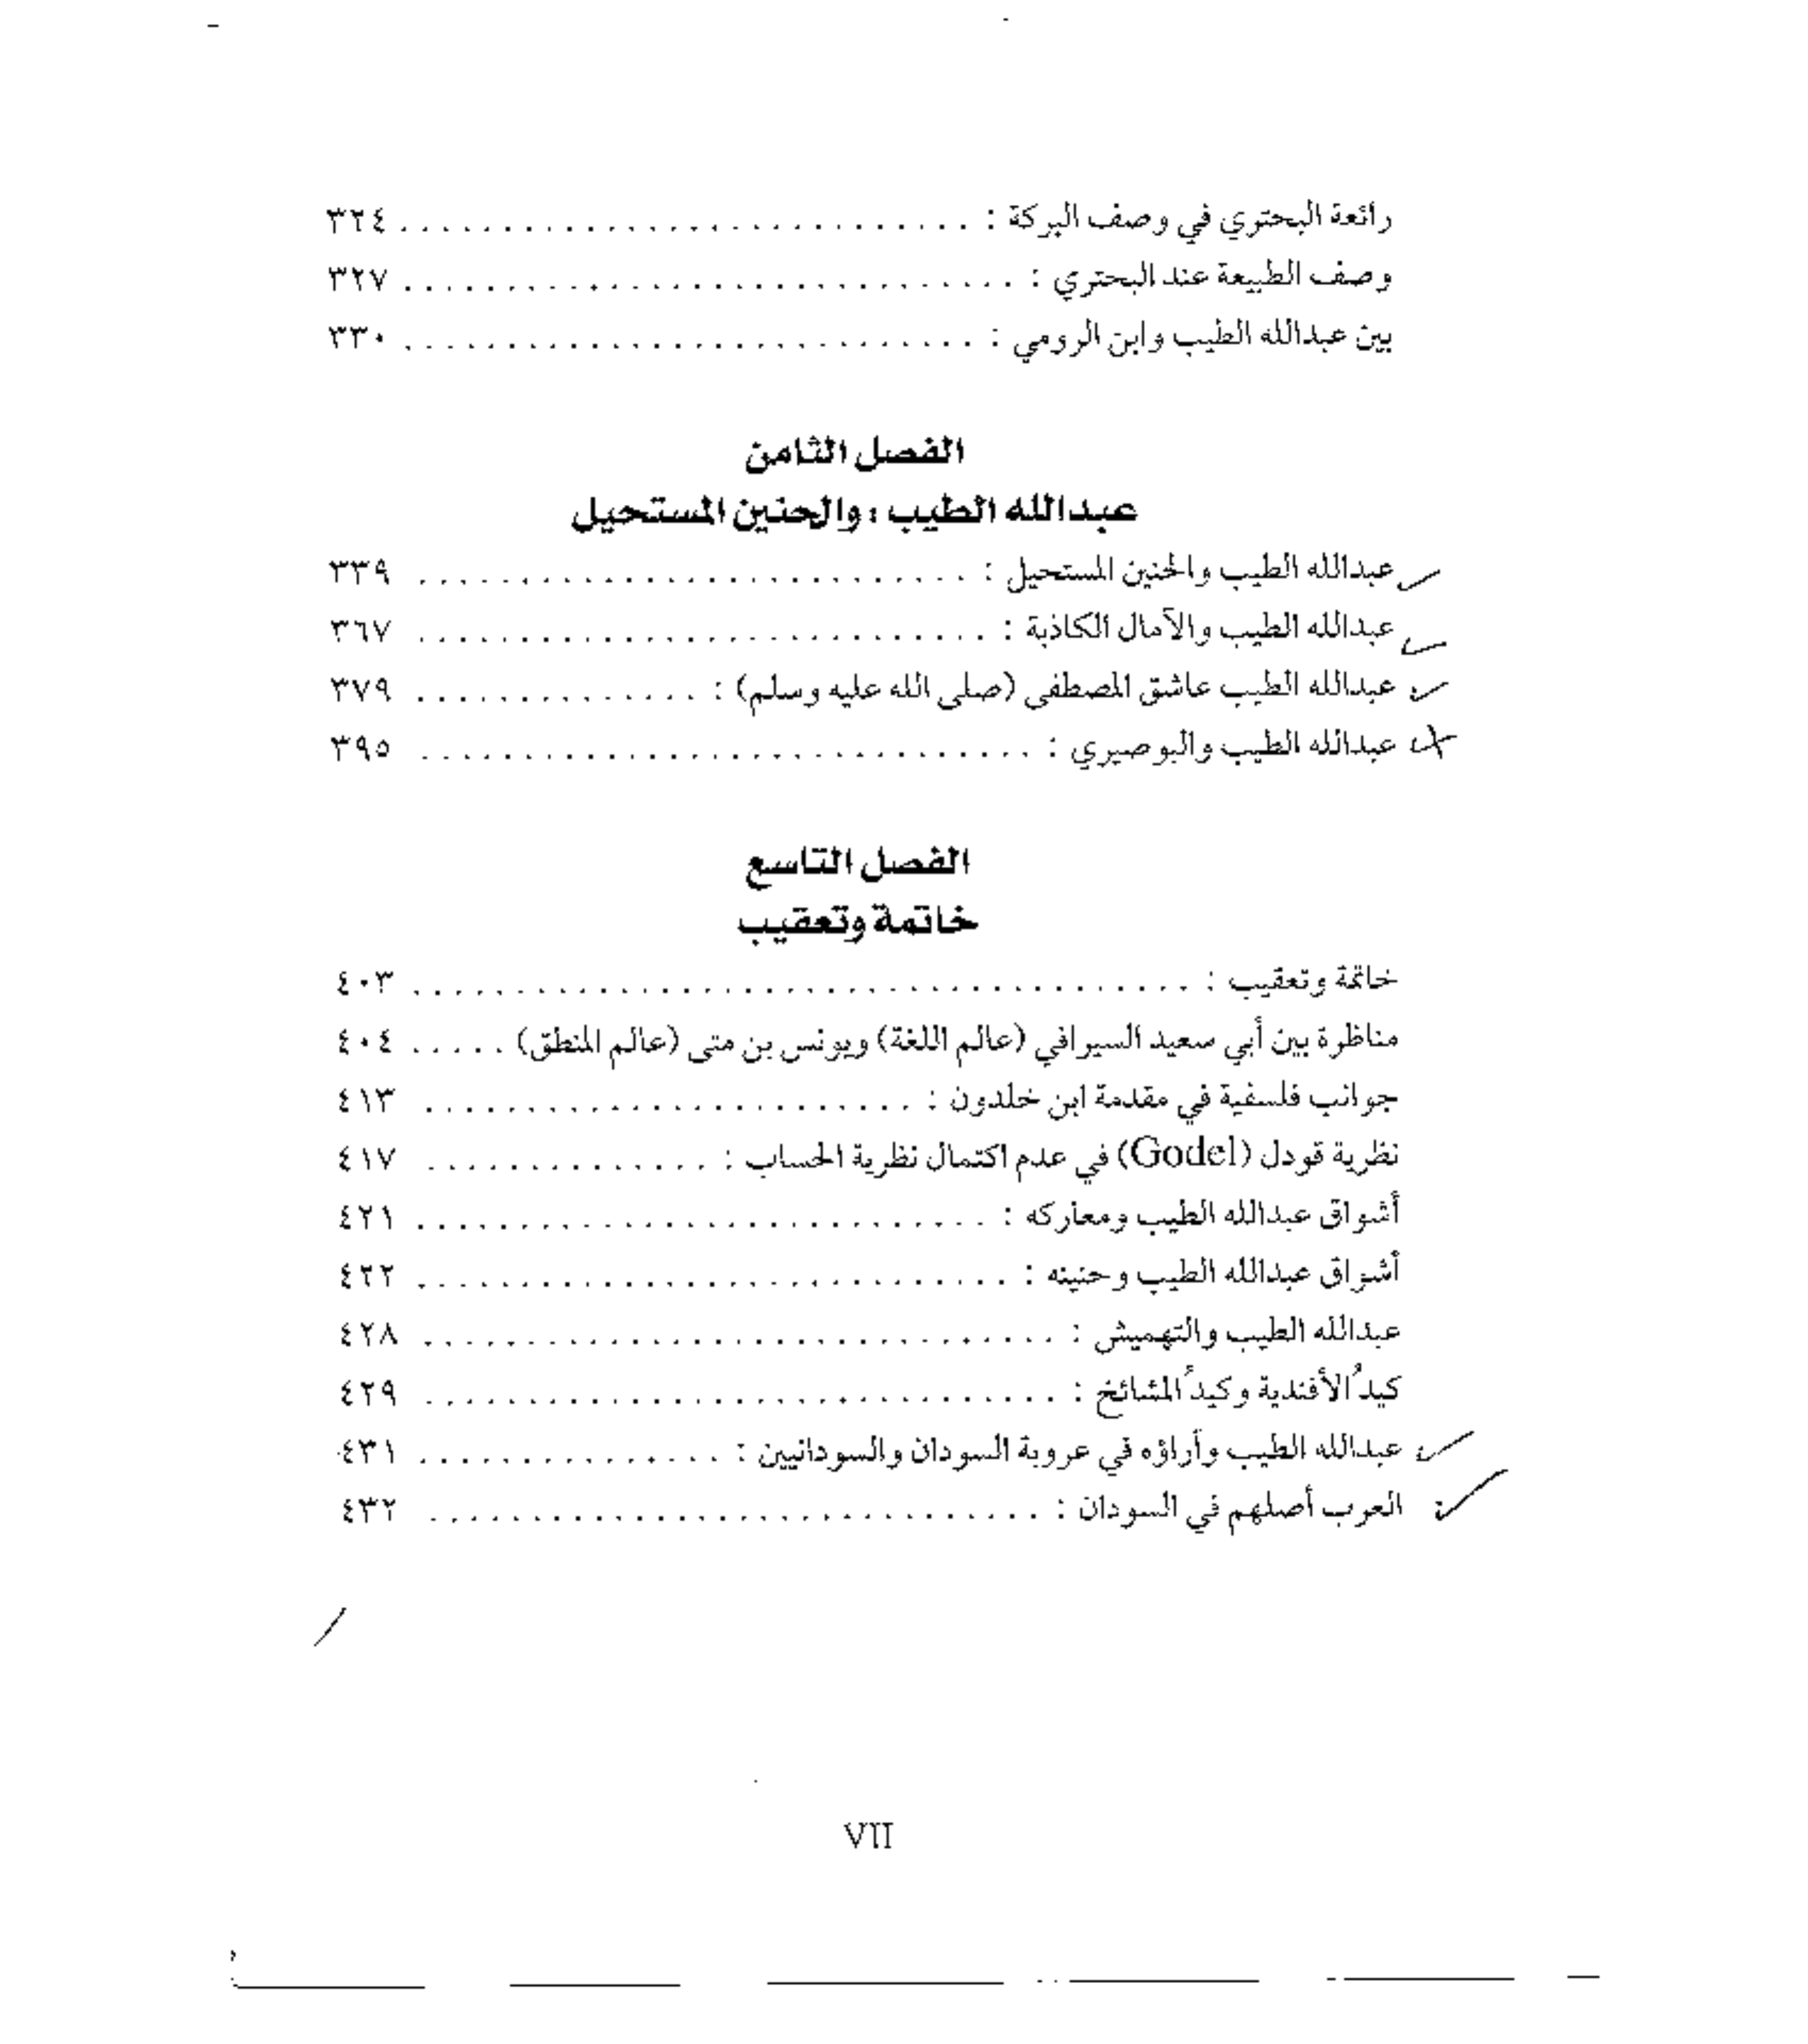 رائعة البحتري في وصف البركة : ............................ ٣٢٤
وصف الطبيعة عند البحتري : .............................. ٣٢٧
بين عبدالله الطيب وابن الرومي : ............................ ٣٣٠
الفصل الثامن
عبدالله الطيب : والحنين المستحيل
عبدالله الطيب والحنين المستحيل : ........................... ٣٣٩
عبدالله الطيب والآمال الكاذبة : ............................ ٣٦٧
عبدالله الطيب عاشق المصطفى (صلى الله عليه وسلم) : .............. ٣٧٩
عبدالله الطيب والبوصيري : .............................. ٣٩٥
الفصل التاسع
خاتمة وتعقيب
خاتمة وتعقيب : ...................................... ٤٠٣
مناظرة بين أبي سعيد السيرافي (عالم اللغة) ويونس بن متى (عالم المنطق) ..... ٤٠٤
جوانب فلسفية في مقدمة ابن خلدون : ........................ ٤١٣
نظرية قودل (Godel) في عدم اكتمال نظرية الحساب : .............. ٤١٧
أشواق عبدالله الطيب ومعاركه : ............................ ٤٢١
أشواق عبدالله الطيب وحنينه : ............................. ٤٢٢
عبدالله الطيب والتهميش : ............................... ٤٢٨
كيدُ الأفندية وكيدُ المشائخ : ............................... ٤٢٩
عبدالله الطيب وأراؤه في عروبة السودان والسودانيين : ............... ٤٣١
العرب أصلهم في السودان : .............................. ٤٣٢
VII